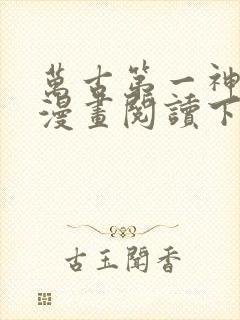 萬古第一神
漫畫閱讀下
古玉聞香